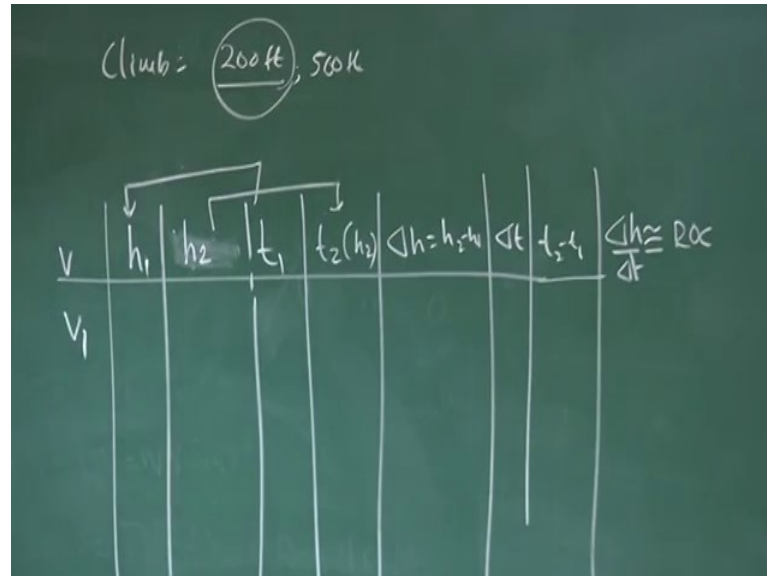 Climb: 200ft, 500ft
V h₁ h₂ t₁ t₂(h₂) Δh = h₂-h₁ Δt t₂-t₁ Δh/Δt ≅ ROC
V₁